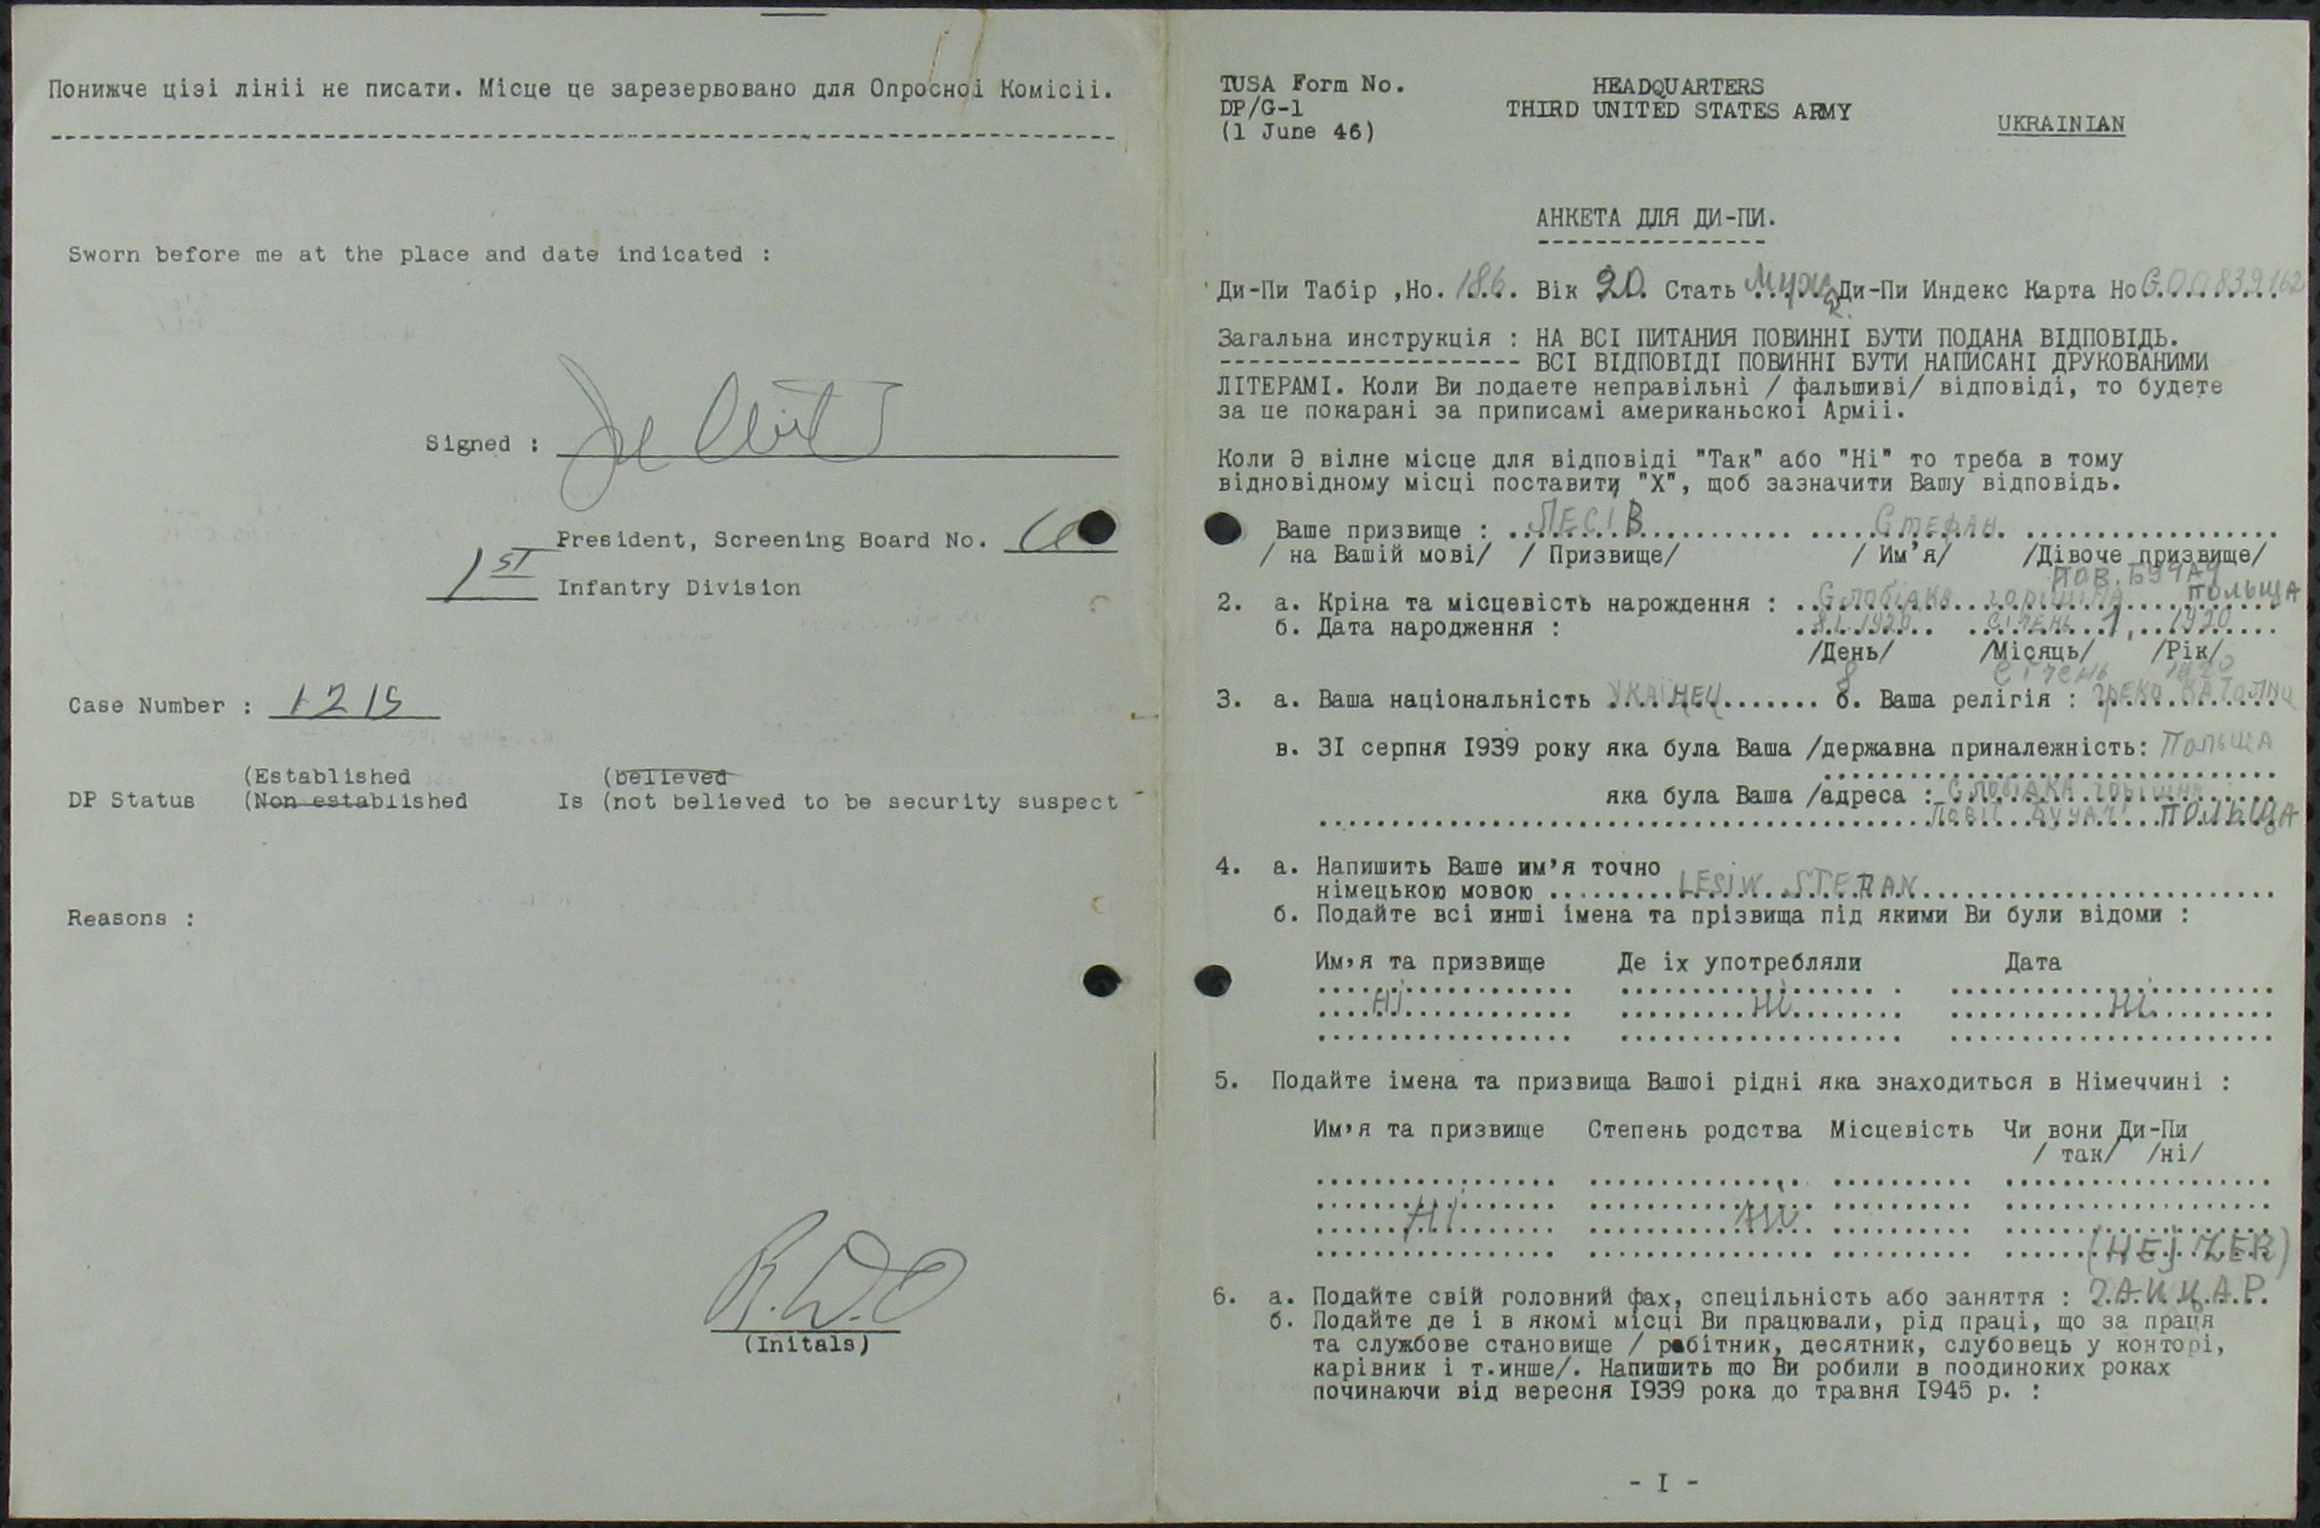 Понижче цієі лініі не писати. Місце це зарезервовано для Опросноі Комісіі.
Sworn before me at the place and date indicated :
Signed :
President, Screening Board No.
1ST Infantry Division
Case Number : 1215
(Established (believed
DP Status (Non established Is (not believed to be security suspect
Reasons :
R.W.O
(Initals)
TUSA Form No. HEADQUARTERS
DP/G-1 THIRD UNITED STATES ARMY
(1 June 46) UKRAINIAN
АНКЕТА ДЛЯ ДИ-ПИ.
Ди-Пи Табір ,Но. 186 Вік 20 Стать Муж Ди-Пи Индекс Карта Но G00839162
Загальна инструкція : НА ВСІ ПИТАНИЯ ПОВИННІ БУТИ ПОДАНА ВІДПОВІДЬ.
ВСІ ВІДПОВІДІ ПОВИННІ БУТИ НАПИСАНІ ДРУКОВАНИМИ
ЛІТЕРАМІ. Коли Ви подаете неправільні / фальшиві/ відповіді, то будете
за це покарані за приписамі американьскоі Арміі.
Коли Э вілне місце для відповіді "Так" або "Ні" то треба в тому
відновідному місці поставити "X", щоб зазначити Вашу відповідь.
Ваше призвище : ЛЕСІВ СТЕФАН
/ на Вашій мові/ / Призвище/ / Им’я/ /Дівоче призвище/
ПОВ. БУЧАЧ
2. а. Кріна та місцевість народження : Слобідка горішна ПОЛЬЩА
б. Дата народження : 8.I.1920 СІЧЕНЬ 1, 1920
/День/ /Місяць/ /Рік/
8 Січень 1920
3. а. Ваша національність УКАЇНЕЦ б. Ваша релігія : ГРЕКО КАТОЛИЦ
в. 3I серпня I939 року яка була Ваша /державна приналежність: ПОЛЬЩА
яка була Ваша /адреса : Слобідка горішна
Повіт Бучач ПОЛЬЩА
4. а. Напишить Ваше им’я точно
німецькою мовою LESIW STEFAN
б. Подайте всі инші імена та прізвища під якими Ви були відоми :
Им’я та призвище Де іх употребляли Дата
Ні Ні Ні
5. Подайте імена та призвища Вашоі рідні яка знаходиться в Німеччині :
Им’я та призвище Степень родства Місцевість Чи вони Ди-Пи
/ так/ /ні/
Ні Ні
(HEJZER)
6. а. Подайте свій головний фах, спецільність або заняття : ГАЙЦАР.
б. Подайте де і в якомі місці Ви працювали, рід праці, що за праця
та службове становище / рабітник, десятник, слубовець у конторі,
карівник і т.инше/. Напишить що Ви робили в поодиноких роках
починаючи від вересня I939 рока до травня I945 р. :
- I -